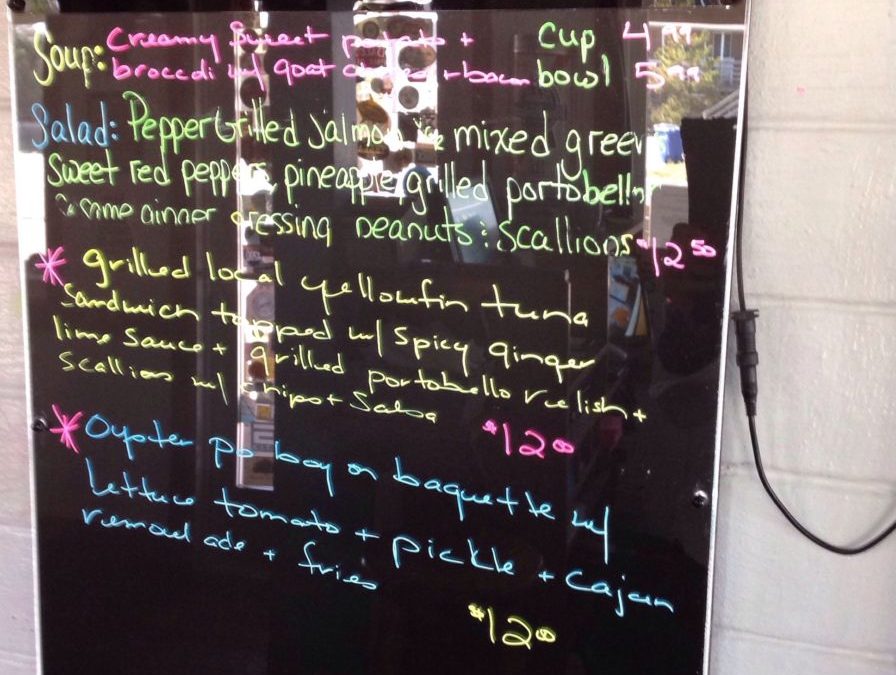 Soup: Creamy Sweet potato + cup 4 99
broccoli w/ goat cheese + bacon bowl 5 99
Salad: Pepper Grilled Salmon mixed green
Sweet red peppers, pineapple, grilled portobello
dressing peanuts : Scallions $12 50
* grilled local yellowfin tuna
Sandwich topped w/ spicy ginger
lime Sauce + grilled portobello relish +
Scallions w/ chips + Salsa
$12 00
* Oyster po boy on baguette w/
lettuce tomato + pickle + cajun
remoulade + fries
$12 00